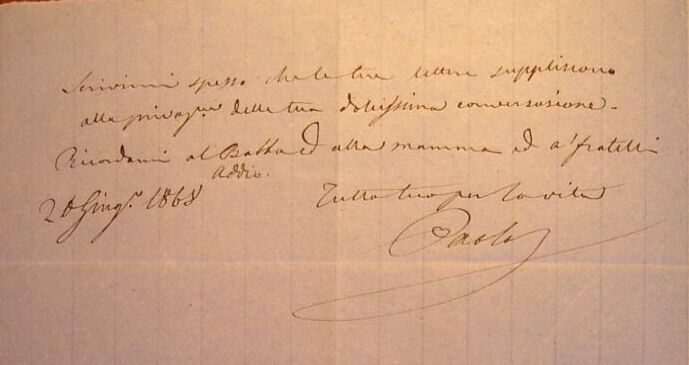 Scrivimi spesso che le tue lettere suppliscono
alla privazne della tua dolcissima conversazione.
Ricordami al Babbo ed alla mamma ed a' fratelli
Addio.
20 Giugo. 1868
Tutto tuo per la vita
Paolo